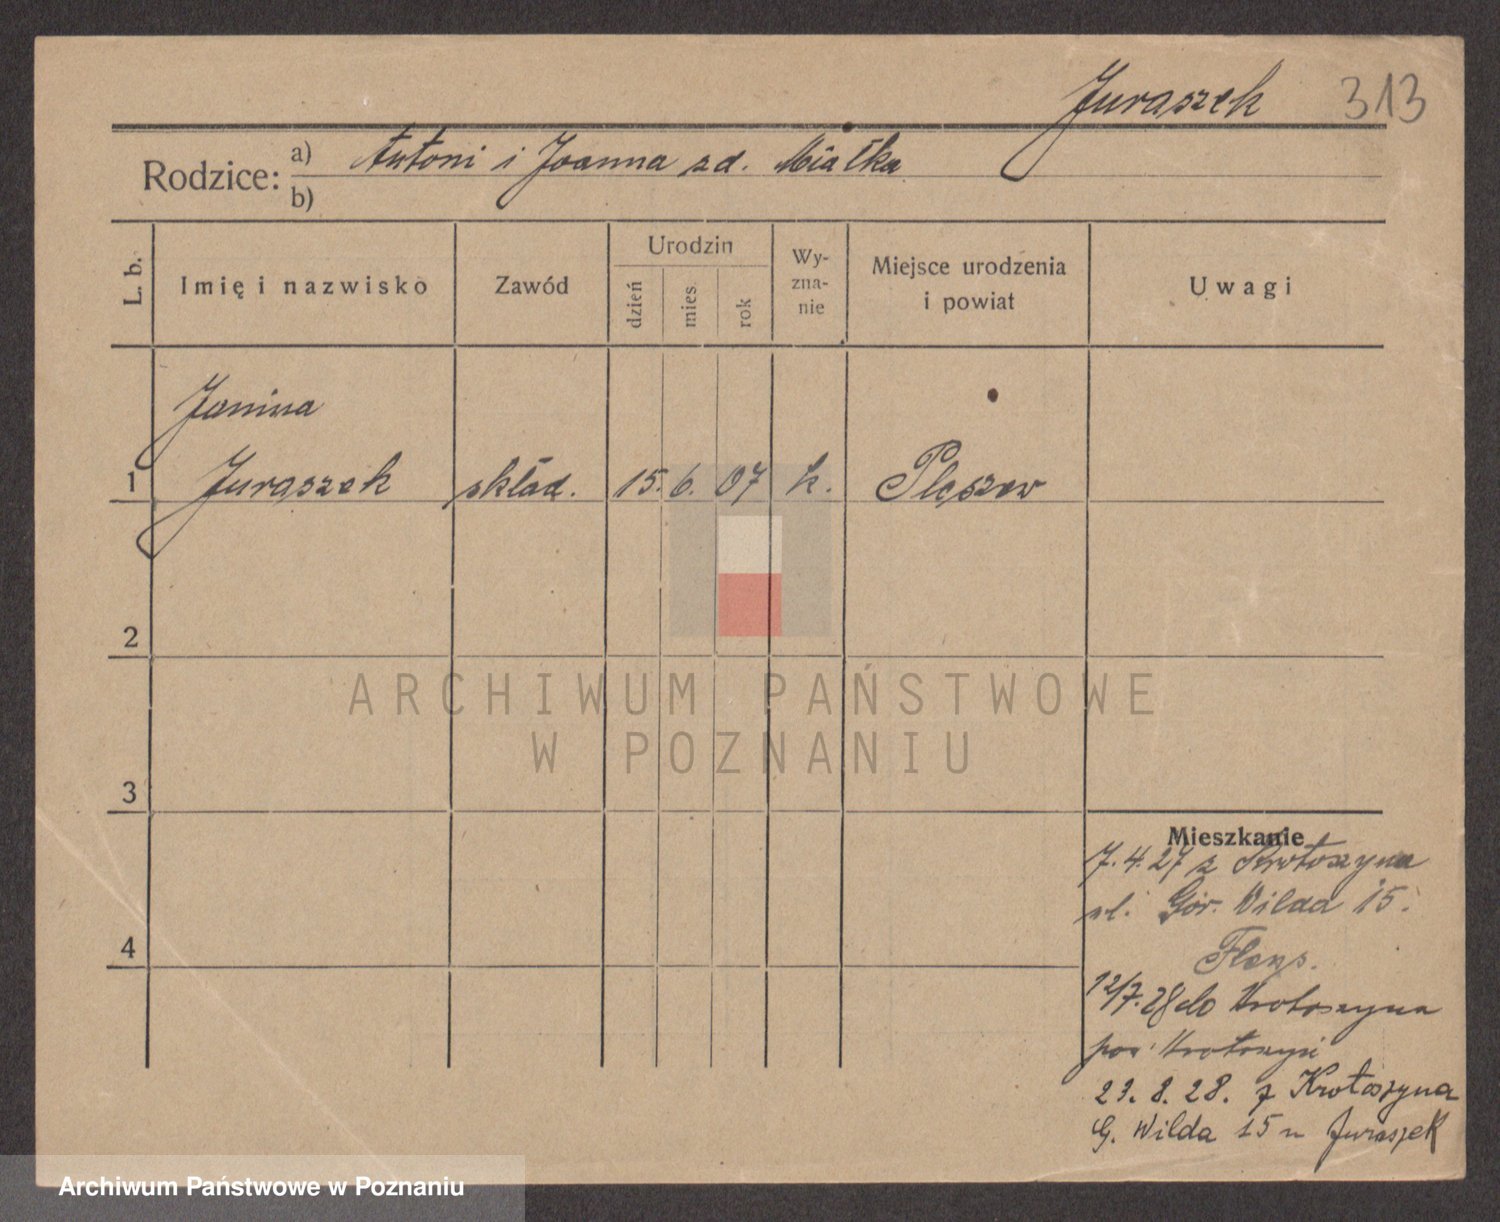 Juraszek 313
Rodzice: a) Antoni i Joanna zd. Miałka
b)
L. b. Imię i nazwisko Zawód Urodzin dzień mies rok Wy-zna-nie Miejsce urodzenia i powiat Uwagi
Janina
1 Juraszek skład. 15. 6. 07 k. Pleszew
2
ARCHIWUM PAŃSTWOWE
W POZNANIU
3
Mieszkanie
7.4.27 z Krotoszyna
ul. Gór. Wilda 15.
4
12/7.28 do Krotoszyna
pow. Krotoszyn
23. 8. 28. z Krotoszyna
G. Wilda 15 u Juraszek
Archiwum Państwowe w Poznaniu